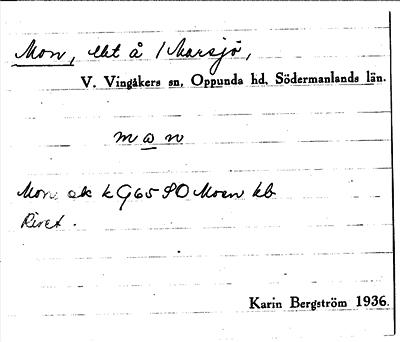 Mon, lht å 1 Marsjö,
V. Vingåkers sn, Oppunda hd, Södermanlands län.
mon
Mon: ek k G65 SO Moen kb
Rivet.
Karin Bergström 1936.